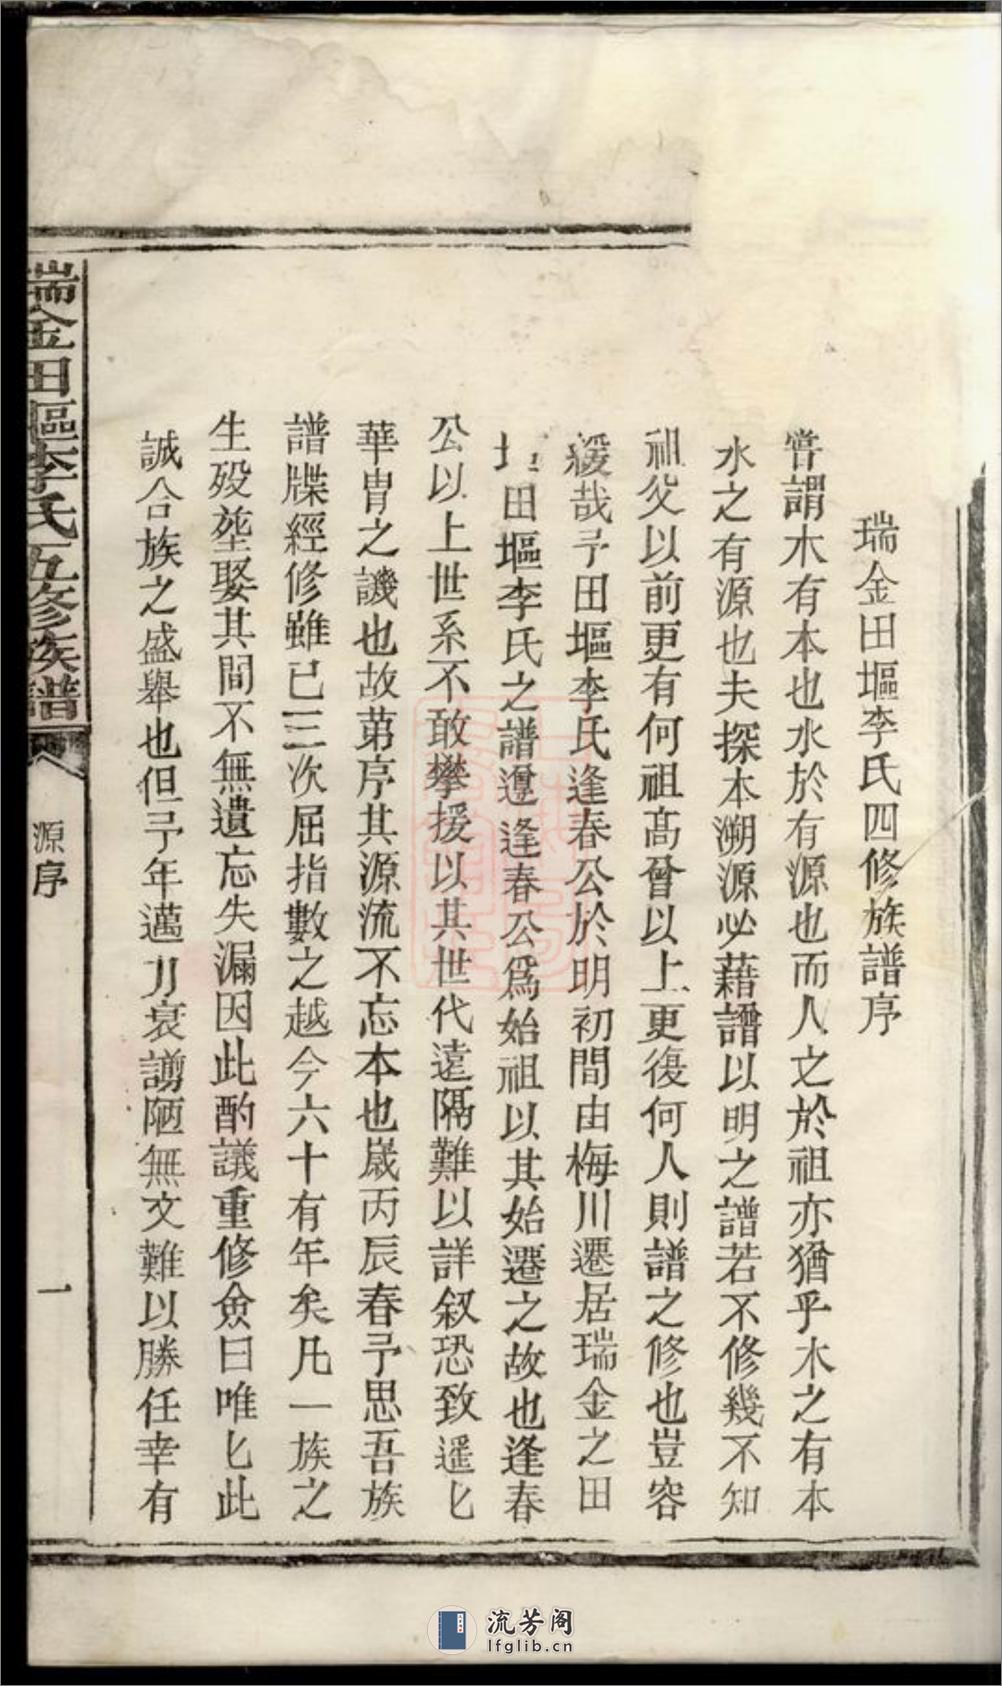 瑞金田塸李氏四修族譜序
嘗謂木有本也水於有源也而人之於祖亦猶乎木之有本
水之有源也夫探本溯源必藉譜以明之譜若不修幾不知
祖父以前更有何祖高曾以上更復何人則譜之修也豈容
緩哉予田塸李氏逢春公於明初間由梅川遷居瑞金之田
田塸李氏之譜遵逢春公爲始祖以其始遷之故也逢春
公以上世系不敢攀援以其世代遠隔難以詳叙恐致遥匕
華胄之譏也故苐序其源流不忘本也歲丙辰春予思吾族
譜牒經修雖已三次屈指數之越今六十有年矣凡一族之
生殁塟娶其間不無遺忘失漏因此酌議重修僉曰唯匕此
誠合族之盛舉也但予年邁力衰謭陋無文難以勝任幸有
瑞金田塸李氏五修族譜
源序
一
流芳阁
lfglib.cn